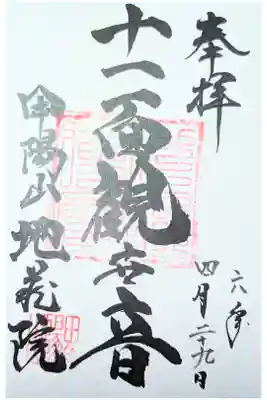 奉拝
六年
四月二十九日
十一面觀世音
甲陽山地蔵院